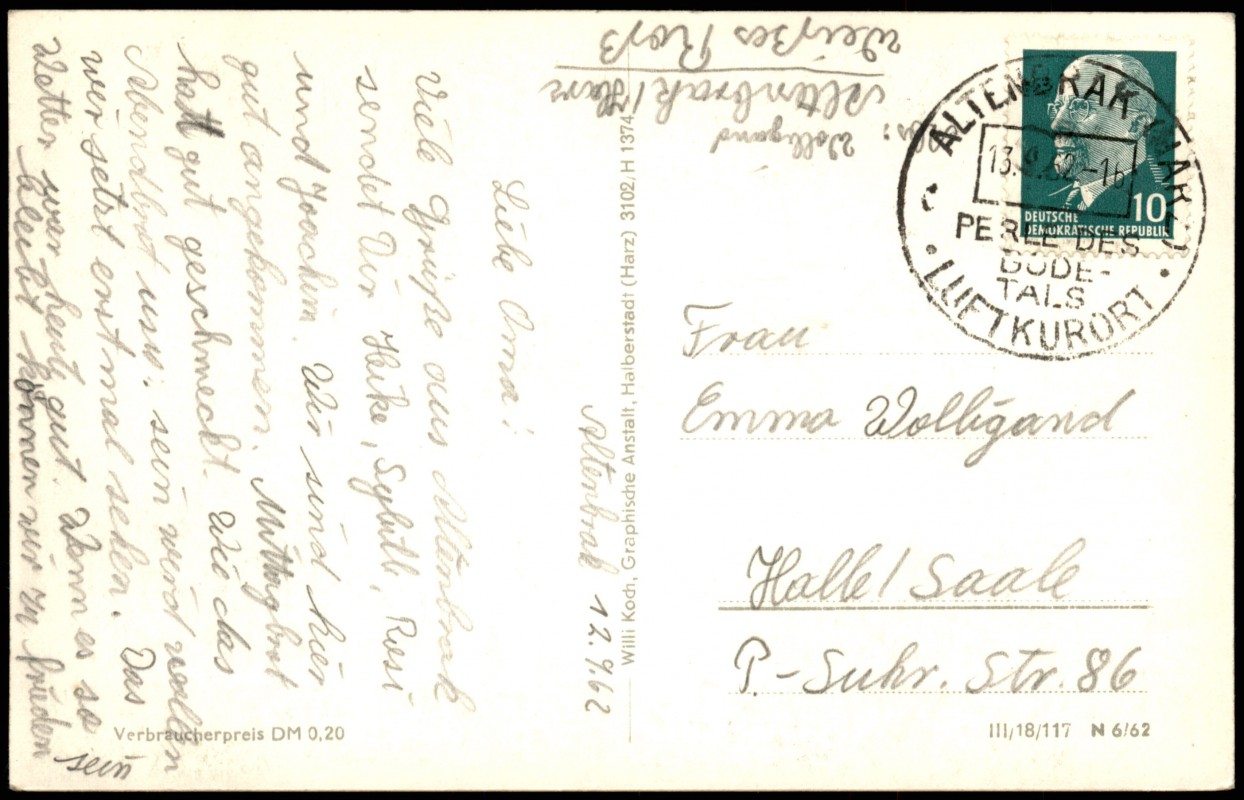 Altenbrak 12.9.62
Liebe Oma!
Viele Grüße aus Altenbrak
sendet Dir Heike, Sybill, Resi
und Joachim. Wir sind hier
gut angekommen. Mittagbrot
hatt gut geschmeckt. Wie das
Abendbrot usw. sein wird wollen
wir setzt erst mal sehen. Das
Wetter war heut gut. Wenn es so
bleibt können wir zu frieden
sein
Verbraucherpreis DM 0,20
Willi Koch, Graphische Anstalt, Halberstadt (Harz) 3102/H 1374
Wolligand
Altenbrak/Harz
Weißes Roß
ALTENBRAK (HARZ)
13.9.62-16
PERLE DES
BODE-
TALS
LUFTKURORT
10
DEUTSCHE
DEMOKRATISCHE REPUBLIK
Frau
Emma Wolligand
Halle/Saale
P.-Suhr. Str. 86
III/18/117 N 6/62